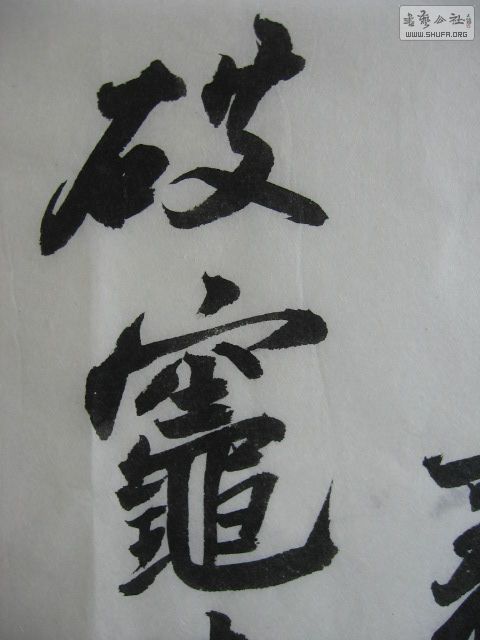 書藝公社
WWW.SHUFA.ORG
破竈